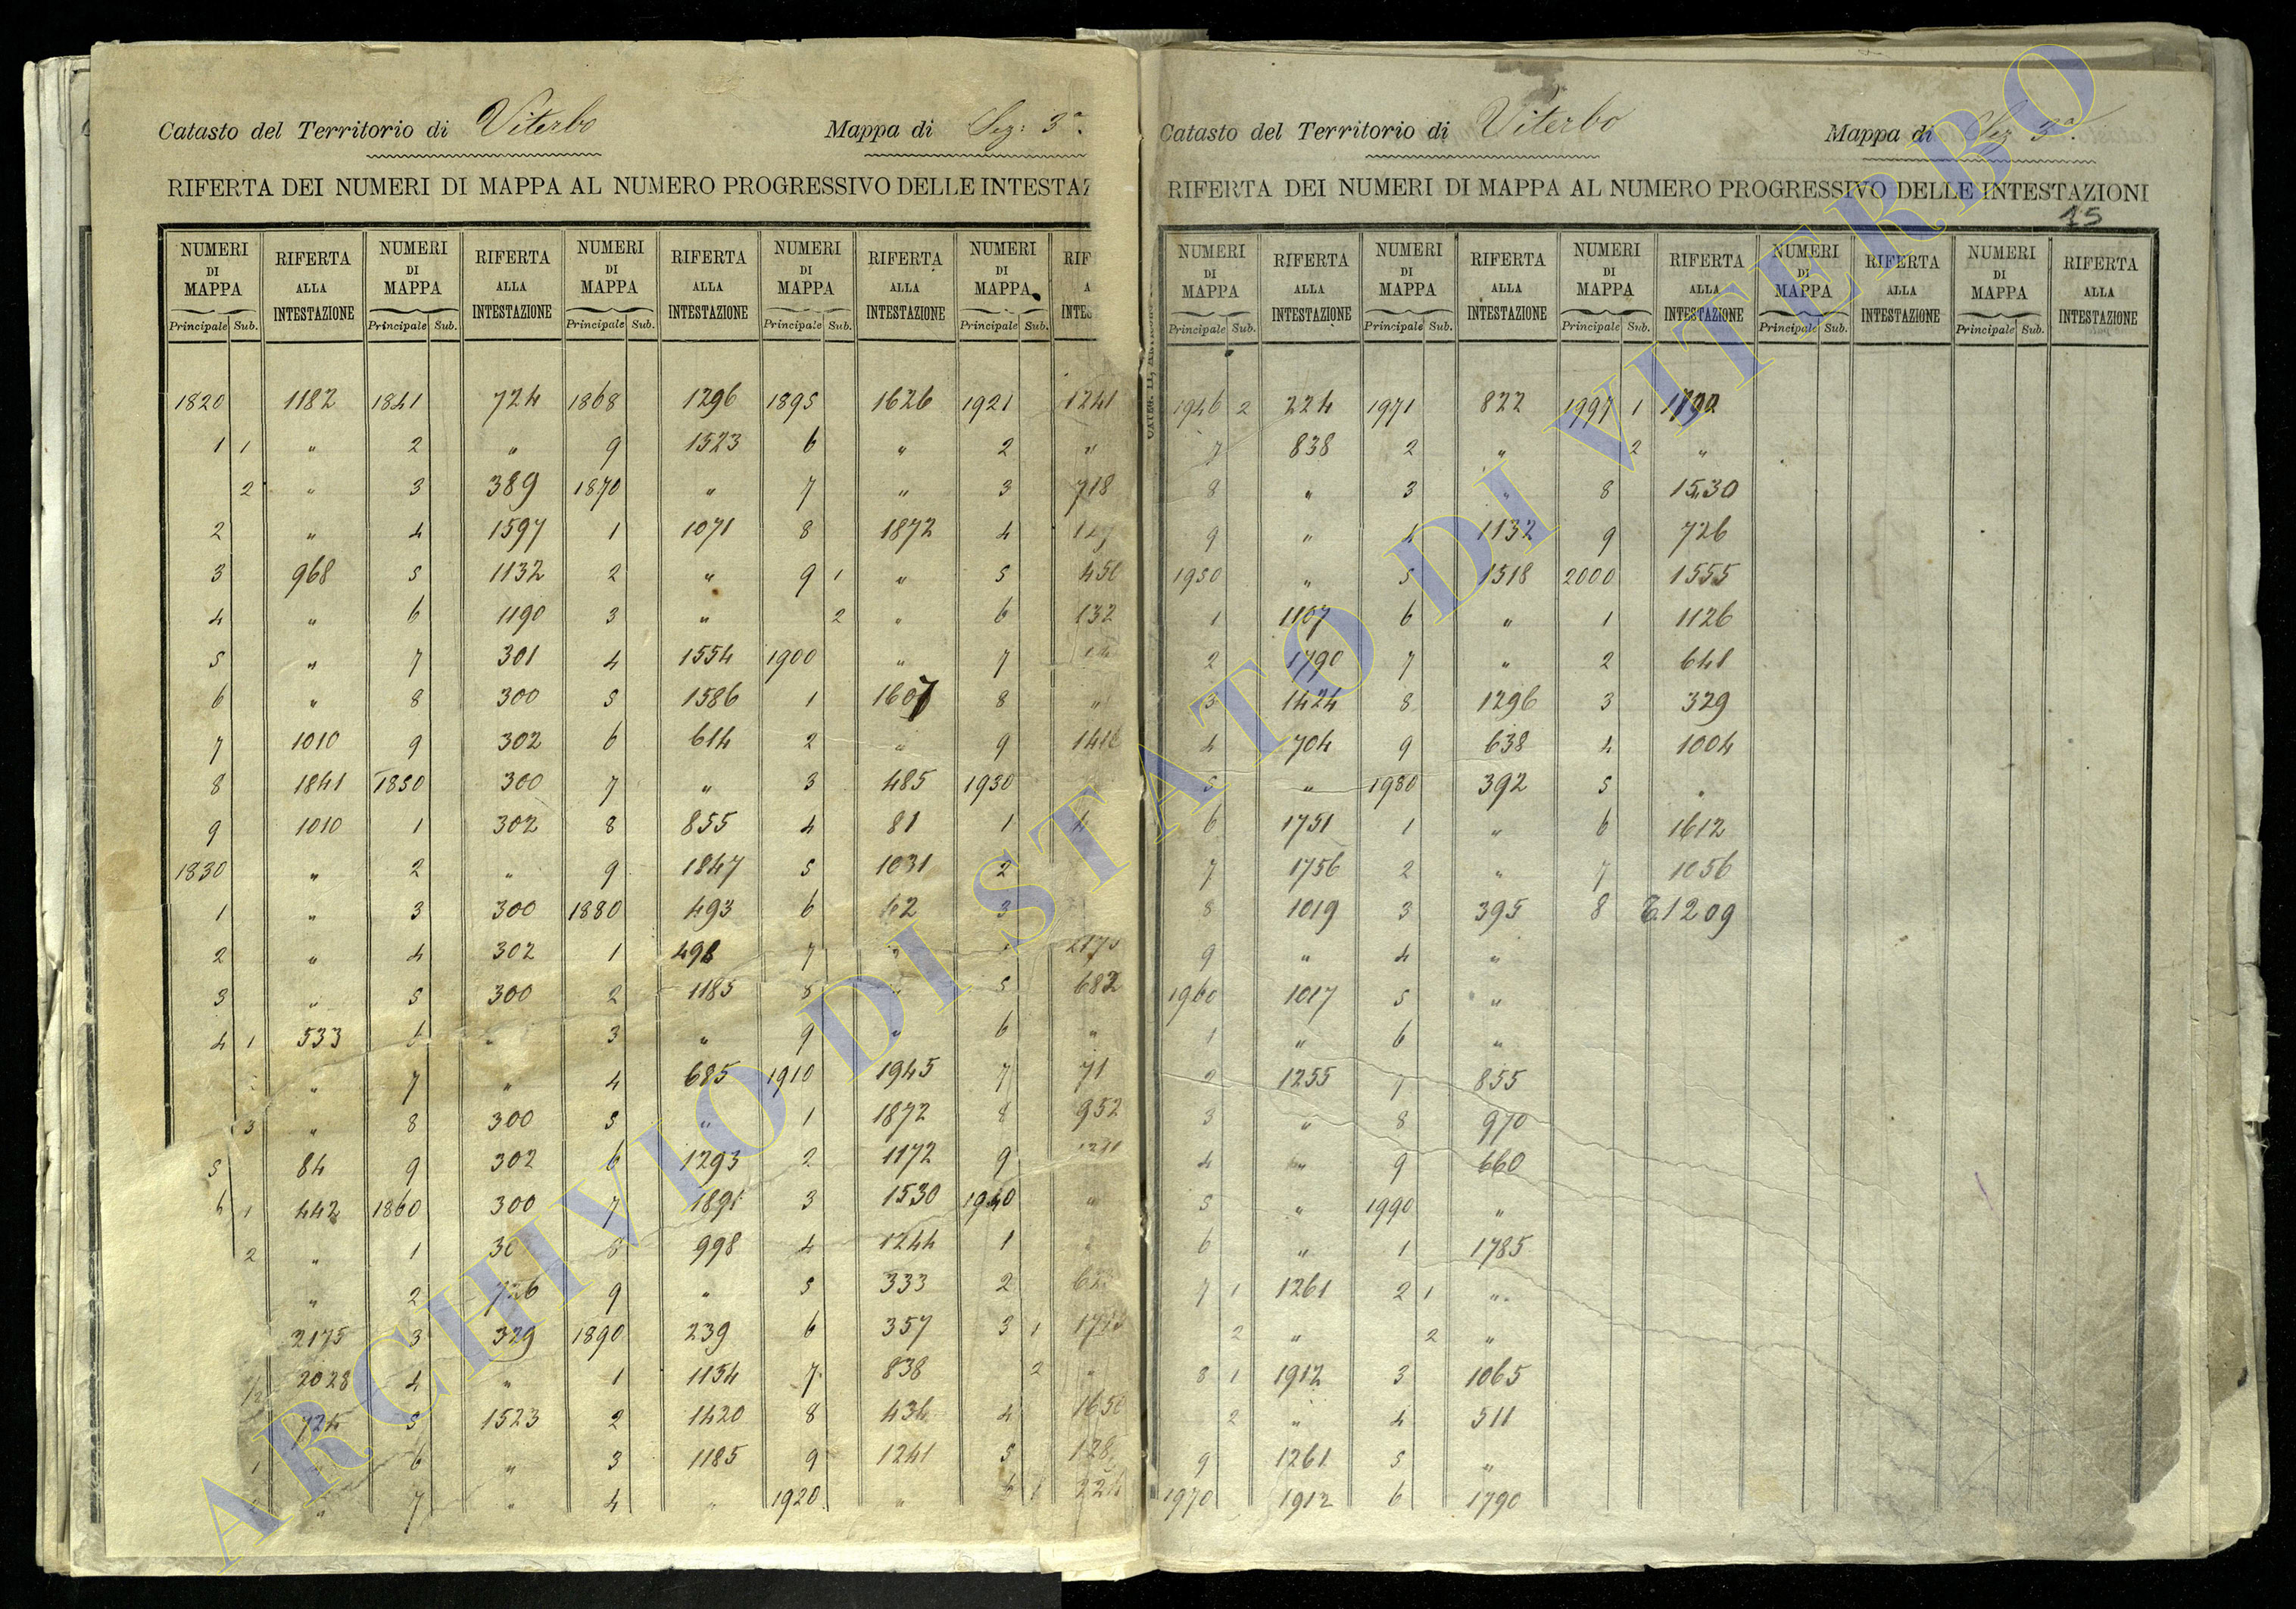 Catasto del Territorio di Viterbo Mappa di Sez: 3ª.
RIFERTA DEI NUMERI DI MAPPA AL NUMERO PROGRESSIVO DELLE INTESTAZ
NUMERI DI MAPPA RIFERTA ALLA INTESTAZIONE NUMERI DI MAPPA RIFERTA ALLA INTESTAZIONE NUMERI DI MAPPA RIFERTA ALLA INTESTAZIONE NUMERI DI MAPPA RIFERTA ALLA INTESTAZIONE NUMERI DI MAPPA RIF A INTES
Principale Sub. Principale Sub. Principale Sub. Principale Sub. Principale Sub.
1820 1182 1841 724 1868 1296 1895 1626 1921 1241
1 1 " 2 " 9 1523 6 " 2 "
2 " 3 389 1870 " 7 " 3 718
2 " 4 1597 1 1071 8 1872 4
3 968 5 1132 2 " 9 1 " 5 450
4 " 6 1190 3 " 2 " 6 132
5 " 7 301 4 1554 1900 " 7
6 " 8 300 5 1586 1 1607 8 "
7 1010 9 302 6 614 2 " 9 141
8 1841 1850 300 7 " 3 485 1930
9 1010 1 302 8 855 4 81 1
1830 " 2 " 9 1847 5 1031 2
1 " 3 300 1880 493 6 62 3
2 " 4 302 1 498 7 " 2175
3 " 5 300 2 1185 8 " 5 682
4 1 533 6 " 3 " 9 " 6 "
" 7 " 4 685 1910 1945 7 71
3 " 8 300 5 " 1 1872 8 952
5 84 9 302 6 1293 2 1172 9
6 1 442 1860 300 7 1891 3 1530 1940 "
2 " 1 30 8 998 4 1244 1
" 2 726 9 " 5 333 2
2175 3 329 1890 239 6 357 3 1
1/2 2028 4 " 1 1154 7 838 2 "
724 5 1523 2 1420 8 434 4 1650
1 " 6 " 3 1185 9 1241 5 128
" 7 " 4 " 1920 " 6 1 224
Catasto del Territorio di Viterbo Mappa di Sez 3ª.
RIFERTA DEI NUMERI DI MAPPA AL NUMERO PROGRESSIVO DELLE INTESTAZIONI
15
NUMERI DI MAPPA RIFERTA ALLA INTESTAZIONE NUMERI DI MAPPA RIFERTA ALLA INTESTAZIONE NUMERI DI MAPPA RIFERTA ALLA INTESTAZIONE NUMERI DI MAPPA RIFERTA ALLA INTESTAZIONE NUMERI DI MAPPA RIFERTA ALLA INTESTAZIONE
Principale Sub. Principale Sub. Principale Sub. Principale Sub. Principale Sub.
1946 2 224 1971 822 1997 1 1790
7 838 2 " 2 "
8 " 3 " 8 1530
9 " 4 1132 9 726
1950 " 5 1518 2000 1555
1 1107 6 " 1 1126
2 1790 7 " 2 641
3 1424 8 1296 3 329
4 704 9 638 4 1004
5 " 1980 392 5 "
6 1751 1 " 6 1612
7 1756 2 " 7 1056
8 1019 3 395 8 1209
9 " 4 "
1960 1017 5 "
1 " 6 "
2 1255 7 855
3 " 8 970
4 " 9 660
5 " 1990 "
6 " 1 1785
7 1 1261 2 1 "
2 " 2 "
8 1 1912 3 1065
2 " 4 511
9 1261 5 "
1970 1912 6 1790
ARCHIVIO DI STATO DI VITERBO